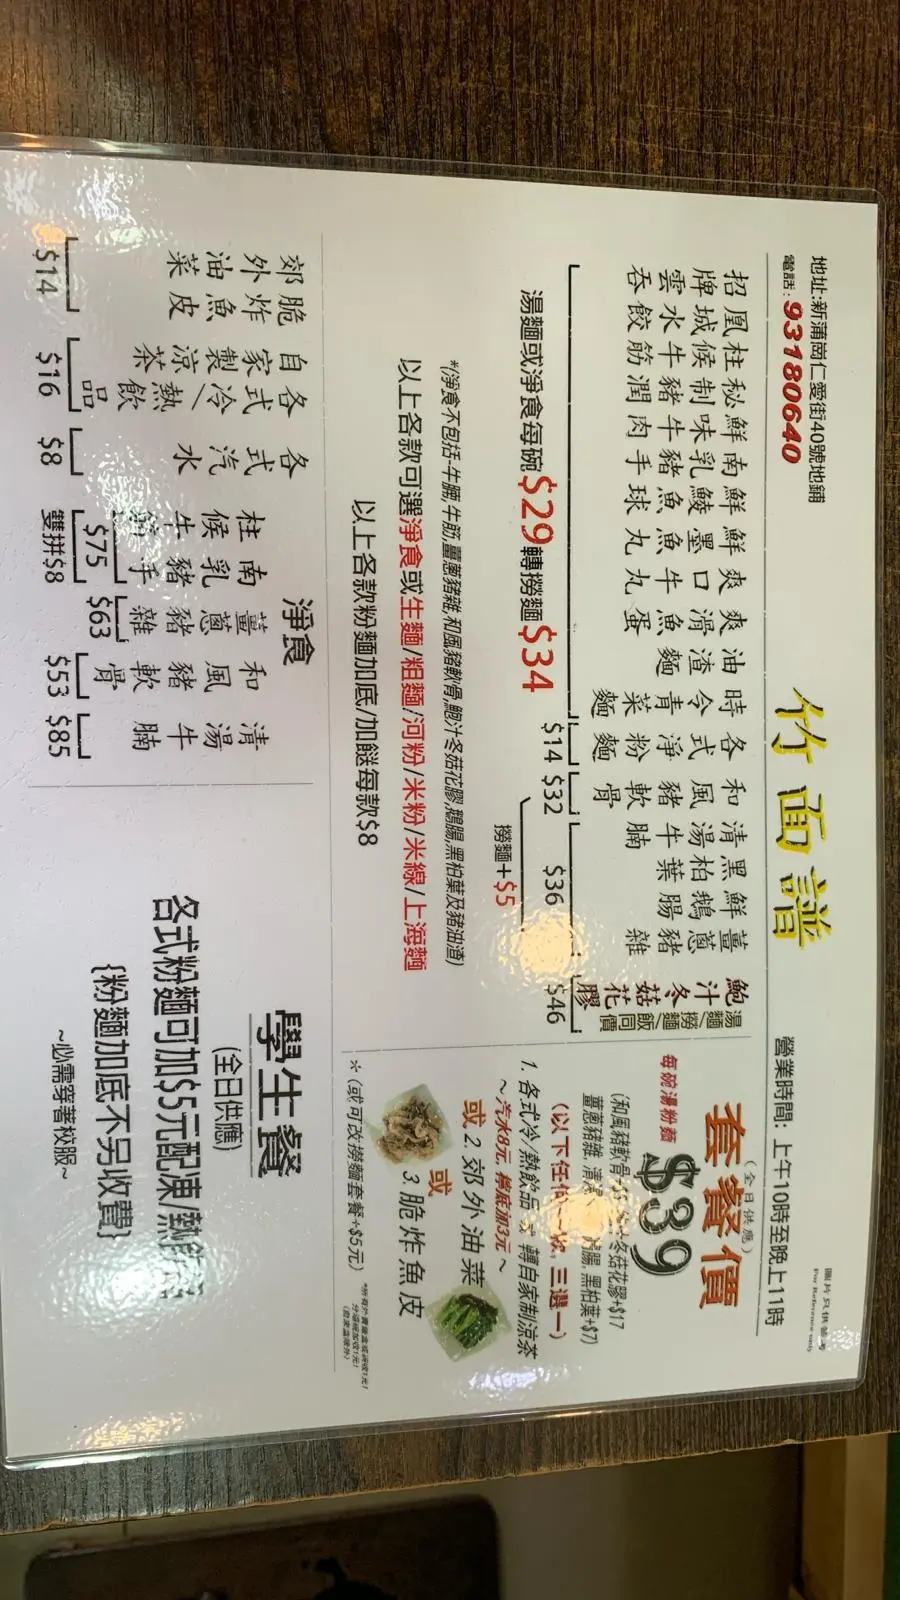 地址:新蒲崗仁愛街40號地鋪
電話:93180640
竹面譜
營業時間: 上午10時至晚上11時
圖片只供參考
For Reference only
招牌雲吞
凰城水餃
柱候牛筋
秘制豬潤
鮮味牛肉
南乳豬手
鮮鯪魚球
鮮墨魚丸
爽口牛丸
爽滑魚蛋
油渣麵
湯麵或淨食每碗$29轉撈麵$34
時令青菜麵
$14
各式淨粉麵
和風豬軟骨
$32
清湯牛腩
黑柏葉
鮮鵝腸
薑蔥豬雜
$36
撈麵+$5
鮑汁冬菇花膠
湯麵/撈麵/飯同價
$46
*(淨食不包括:牛腩,牛筋,薑蔥豬雜,和風豬軟骨,鮑汁冬菇花膠,鵝腸,黑柏葉及豬油渣)
以上各款可選淨食或生麵/粗麵/河粉/米粉/米線/上海麵
以上各款粉麵加底/加餸每款$8
套餐價
(全日供應)
每碗湯粉麵 $39
冬菇花膠+$17
薑蔥豬雜, 清湯
腸, 黑柏葉+$7)
三選一)
1. 各式冷/熱飲品 或 轉自家制涼茶
~汽水8元, 單底加3元~
或 2. 郊外油菜
或 3. 脆炸魚皮
*(或可改撈麵套餐+$5元)
脆炸魚皮
郊外油菜
$14
自家製涼茶
各式冷/熱飲品
$16
各式汽水
$8
淨食
柱侯牛筋
南乳豬手
$75
雙拼$8
薑蔥豬雜
$63
和風豬軟骨
$53
清湯牛腩
$85
學生餐
(全日供應)
各式粉麵可加$5元配凍/熱飲
{粉麵加底不另收費}
~必需穿著校服~